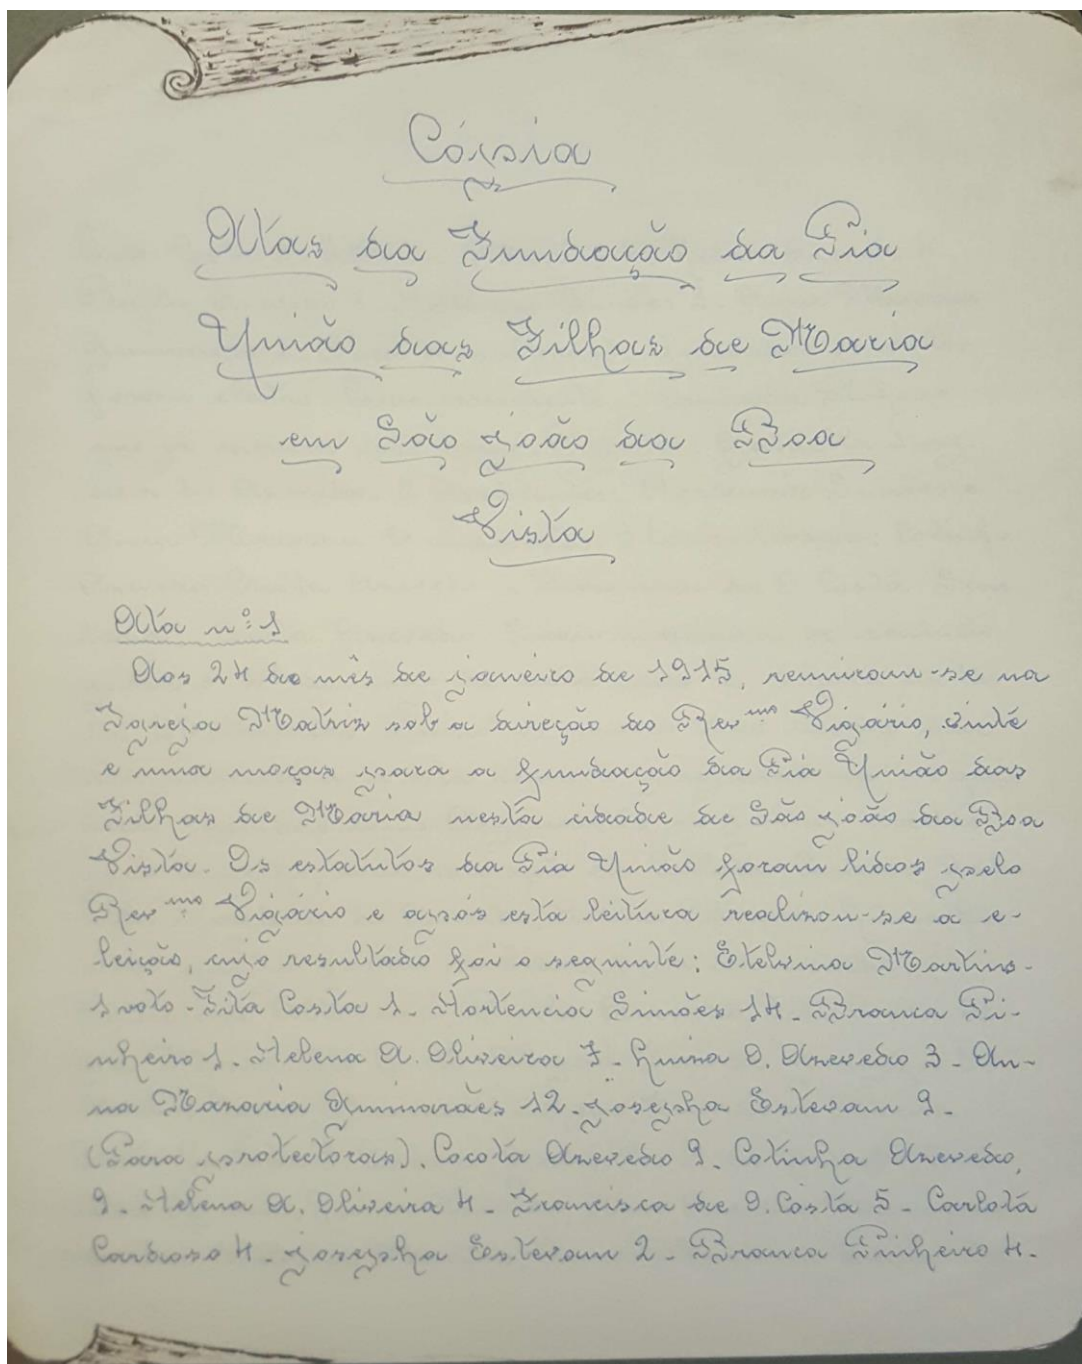 Cópia
Atas da Fundação da Pia
União das Filhas de Maria
em São João da Boa
Vista
Ata nº 1
Aos 24 do mês de janeiro de 1915, reuniram-se na
Igreja Matriz sob a direção do Revmo Vigário, vinte
e uma moças para a fundação da Pia União das
Filhas de Maria nesta cidade de São João da Boa
Vista. Os estatutos da Pia União foram lidos pelo
Revmo Vigário e após esta leitura realizou-se a e-
leição, cujo resultado foi o seguinte: Etelvina Martins-
1 voto - Zita Costa 1 - Hortencia Simões 14 - Branca Pi-
nheiro 1 - Helena A. Oliveira 7 - Luiza O. Azevedo 3 - An-
na Nazaria Guimarães 12 - Josepha Estevam 9 -
(Para protectoras). Cocota Azevedo 9 - Cotinha Azevedo,
9 - Helena A. Oliveira 4 - Francisca de O. Costa 5 - Carlota
Cardoso 4 - Josepha Estevam 2 - Branca Pinheiro 4 -